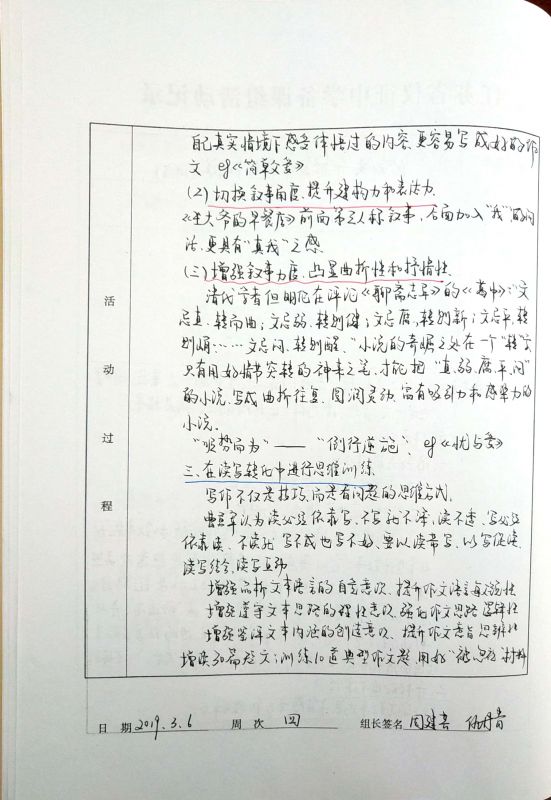 自己真实情境下感受体悟过的内容,更容易写成好的作
文 ef《简单父爱》
(2)切换叙事角度,提升建构力和表达力.
《王大爷的早餐店》前面第三人称叙事,后面加入“我”的
法,更具有“真我”之感.
(三)增强叙事力度,凸显曲折性和抒情性.
清代学者但明伦在评论《聊斋志异》的《葛巾》:“文
忌直,转则曲;文忌弱,转则健;文忌腐,转则新;文忌平,转
则峭……文忌闷,转则醒.”小说的奇崛之处在一个“转”字
只有用好情节突转的神来之笔,才能把“直、弱、腐、平、闷”
的小说,写成曲折往复、圆润灵动、富有吸引力和感染力的
小说.
“顺势而为”——“倒行逆施”, ef《忧与爱》
三、在读写转化中进行思维训练
写作不仅是技巧,而是有问题的思维方式.
曹军认为读必经依靠写,不写就不深,读不透,写必经
依靠读,不读就写不成也写不好,要以读带写,以写促读,
读写结合,读写互动
增强品析文本语言的自觉意识,提升作文语言
增强遵守文本思路的理性意识,强化作文思路逻辑性
增强文本内涵的创造意识,提升作文意旨思辨性
增读30篇短文;训练10道典型作文题,用好“材料
活
动
过
程
日 期 2019.3.6 周 次 四 组长签名 周建